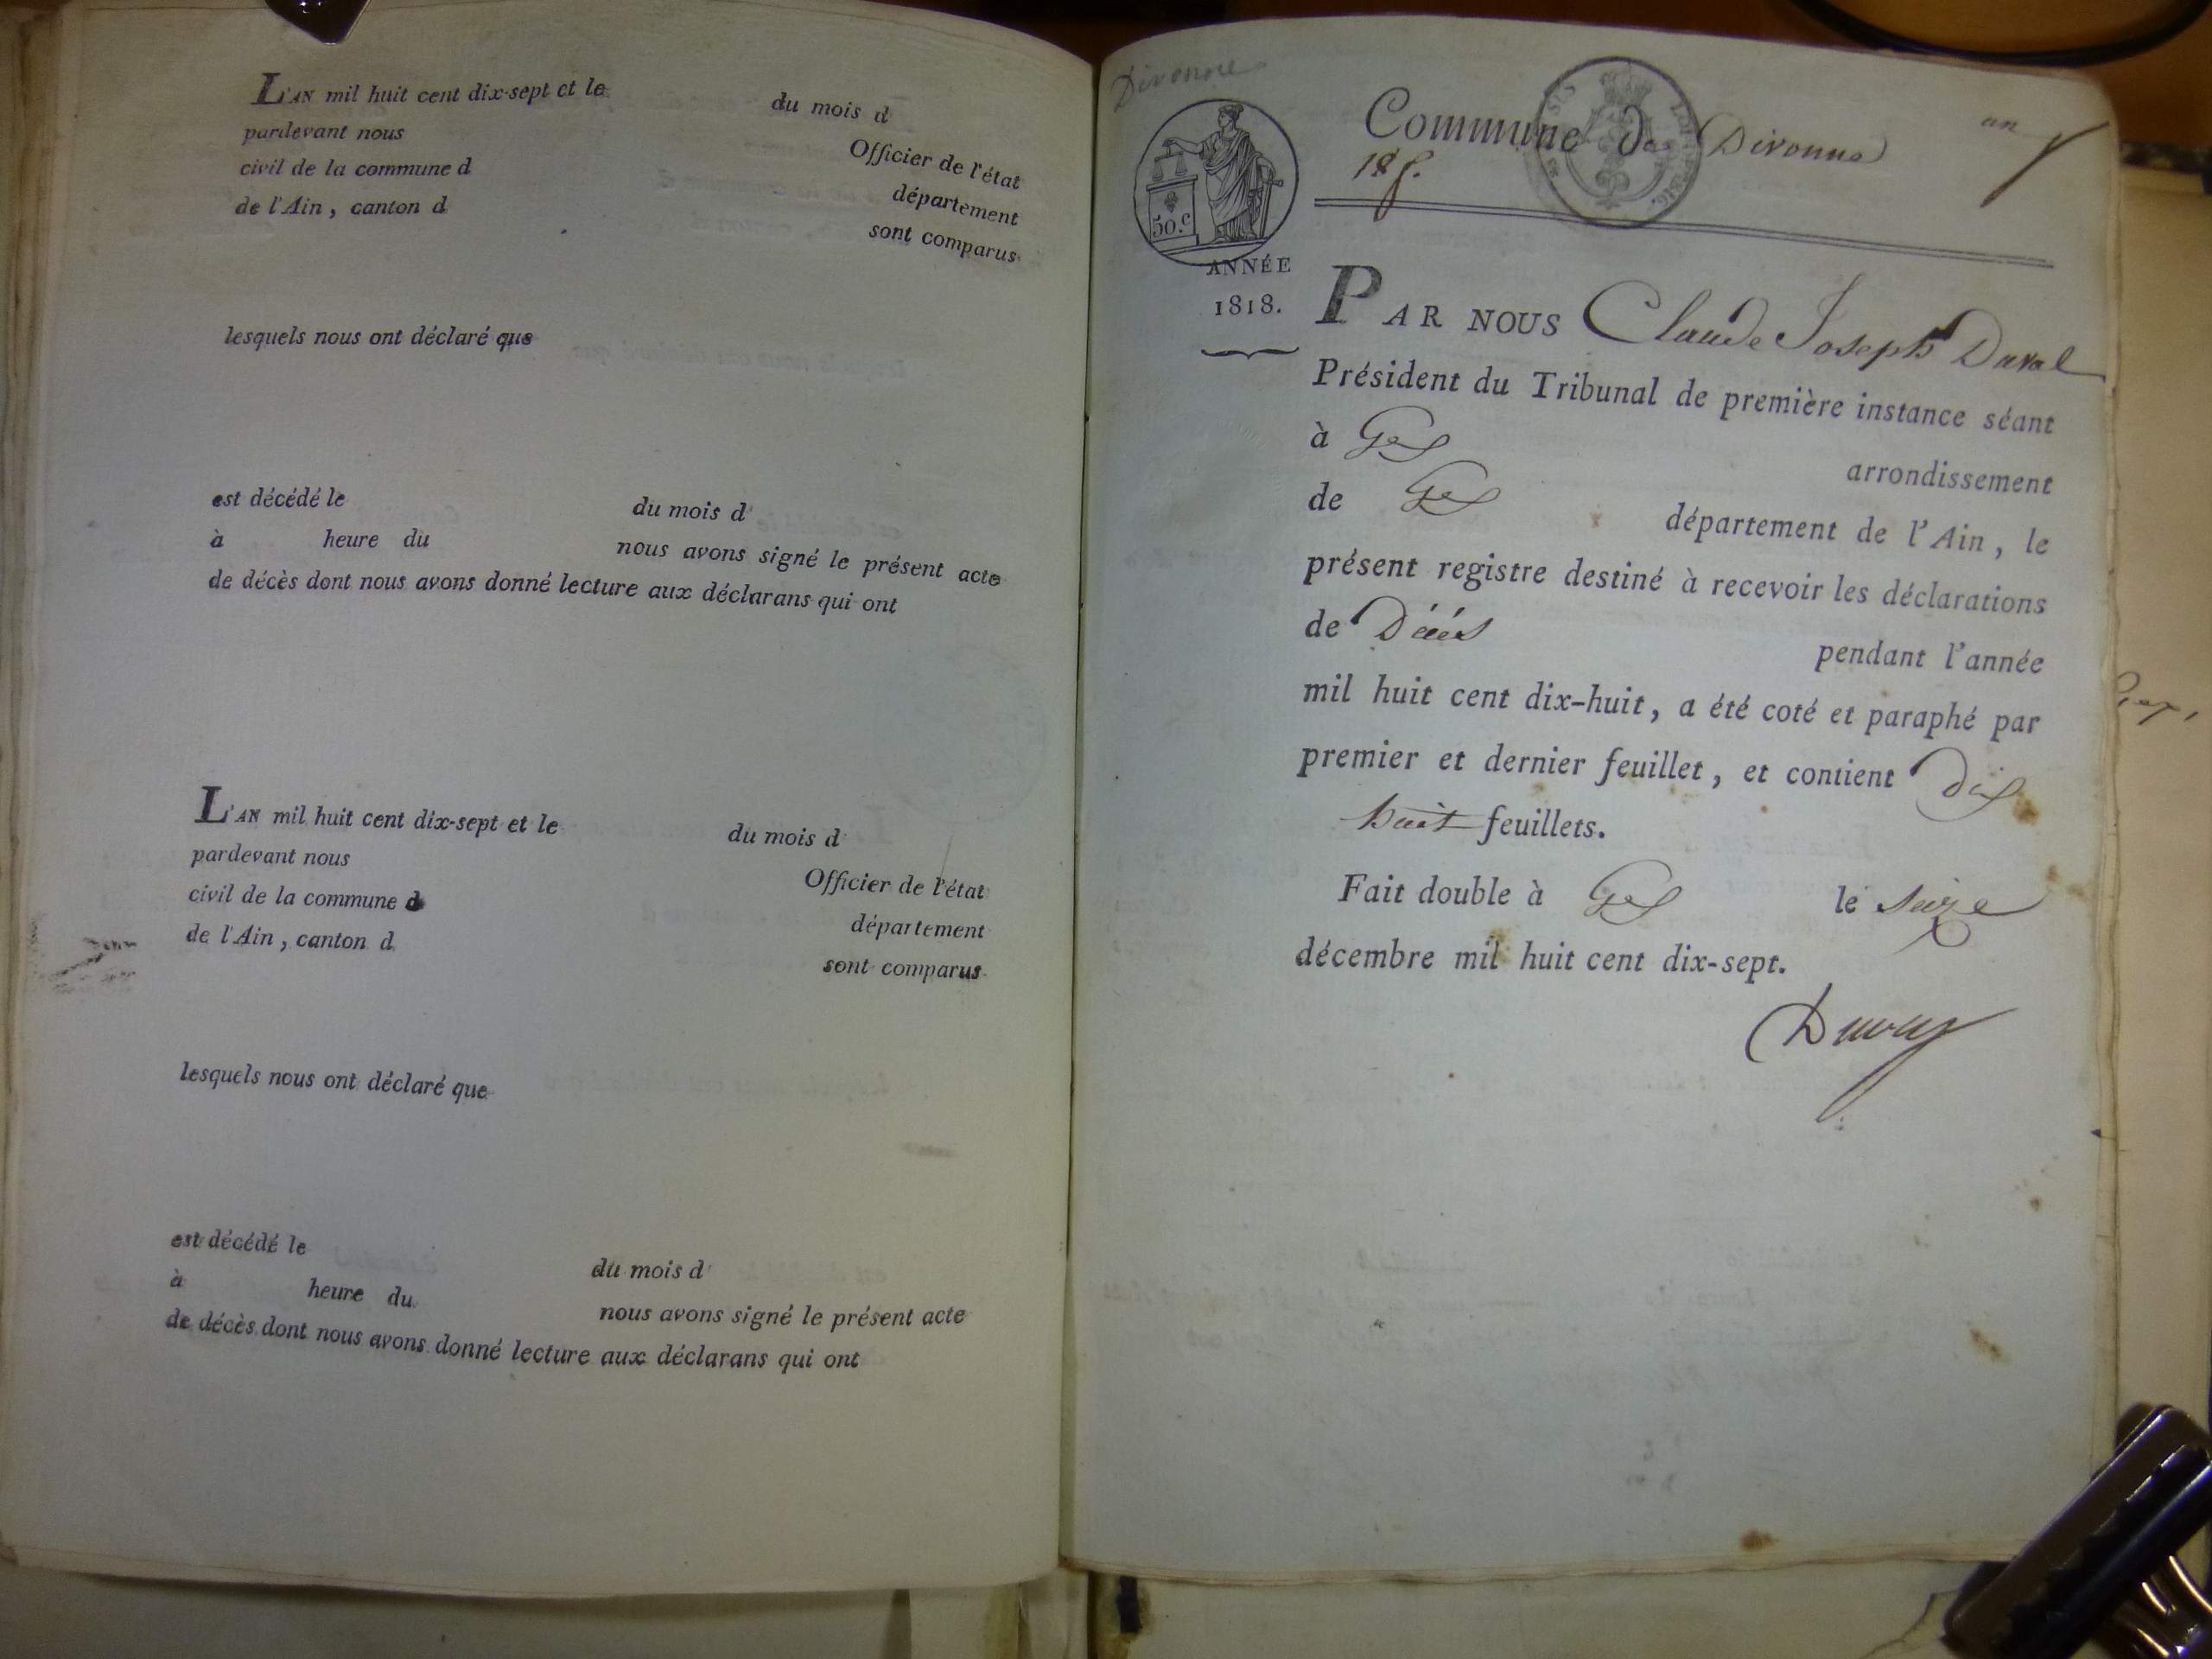 L'AN mil huit cent dix-sept et le du mois d
pardevant nous Officier de l'état
civil de la commune d département
de l'Ain, canton d sont comparus
lesquels nous ont déclaré que
est décédé le du mois d
à heure du nous avons signé le présent acte
de décès dont nous avons donné lecture aux déclarans qui ont
L'AN mil huit cent dix-sept et le du mois d
pardevant nous Officier de l'état
civil de la commune d département
de l'Ain, canton d sont comparus
lesquels nous ont déclaré que
est décédé le du mois d
à heure du nous avons signé le présent acte
de décès dont nous avons donné lecture aux déclarans qui ont
Divonne
Commune de Divonne
50.c
ANNÉE
1818.
PAR NOUS Claude Joseph Duval
Président du Tribunal de première instance séant
à Gex arrondissement
de Gex département de l'Ain, le
présent registre destiné à recevoir les déclarations
de Décés pendant l'année
mil huit cent dix-huit, a été coté et paraphé par
premier et dernier feuillet, et contient dix
huit feuillets.
Fait double à Gex le seize
décembre mil huit cent dix-sept.
Duval